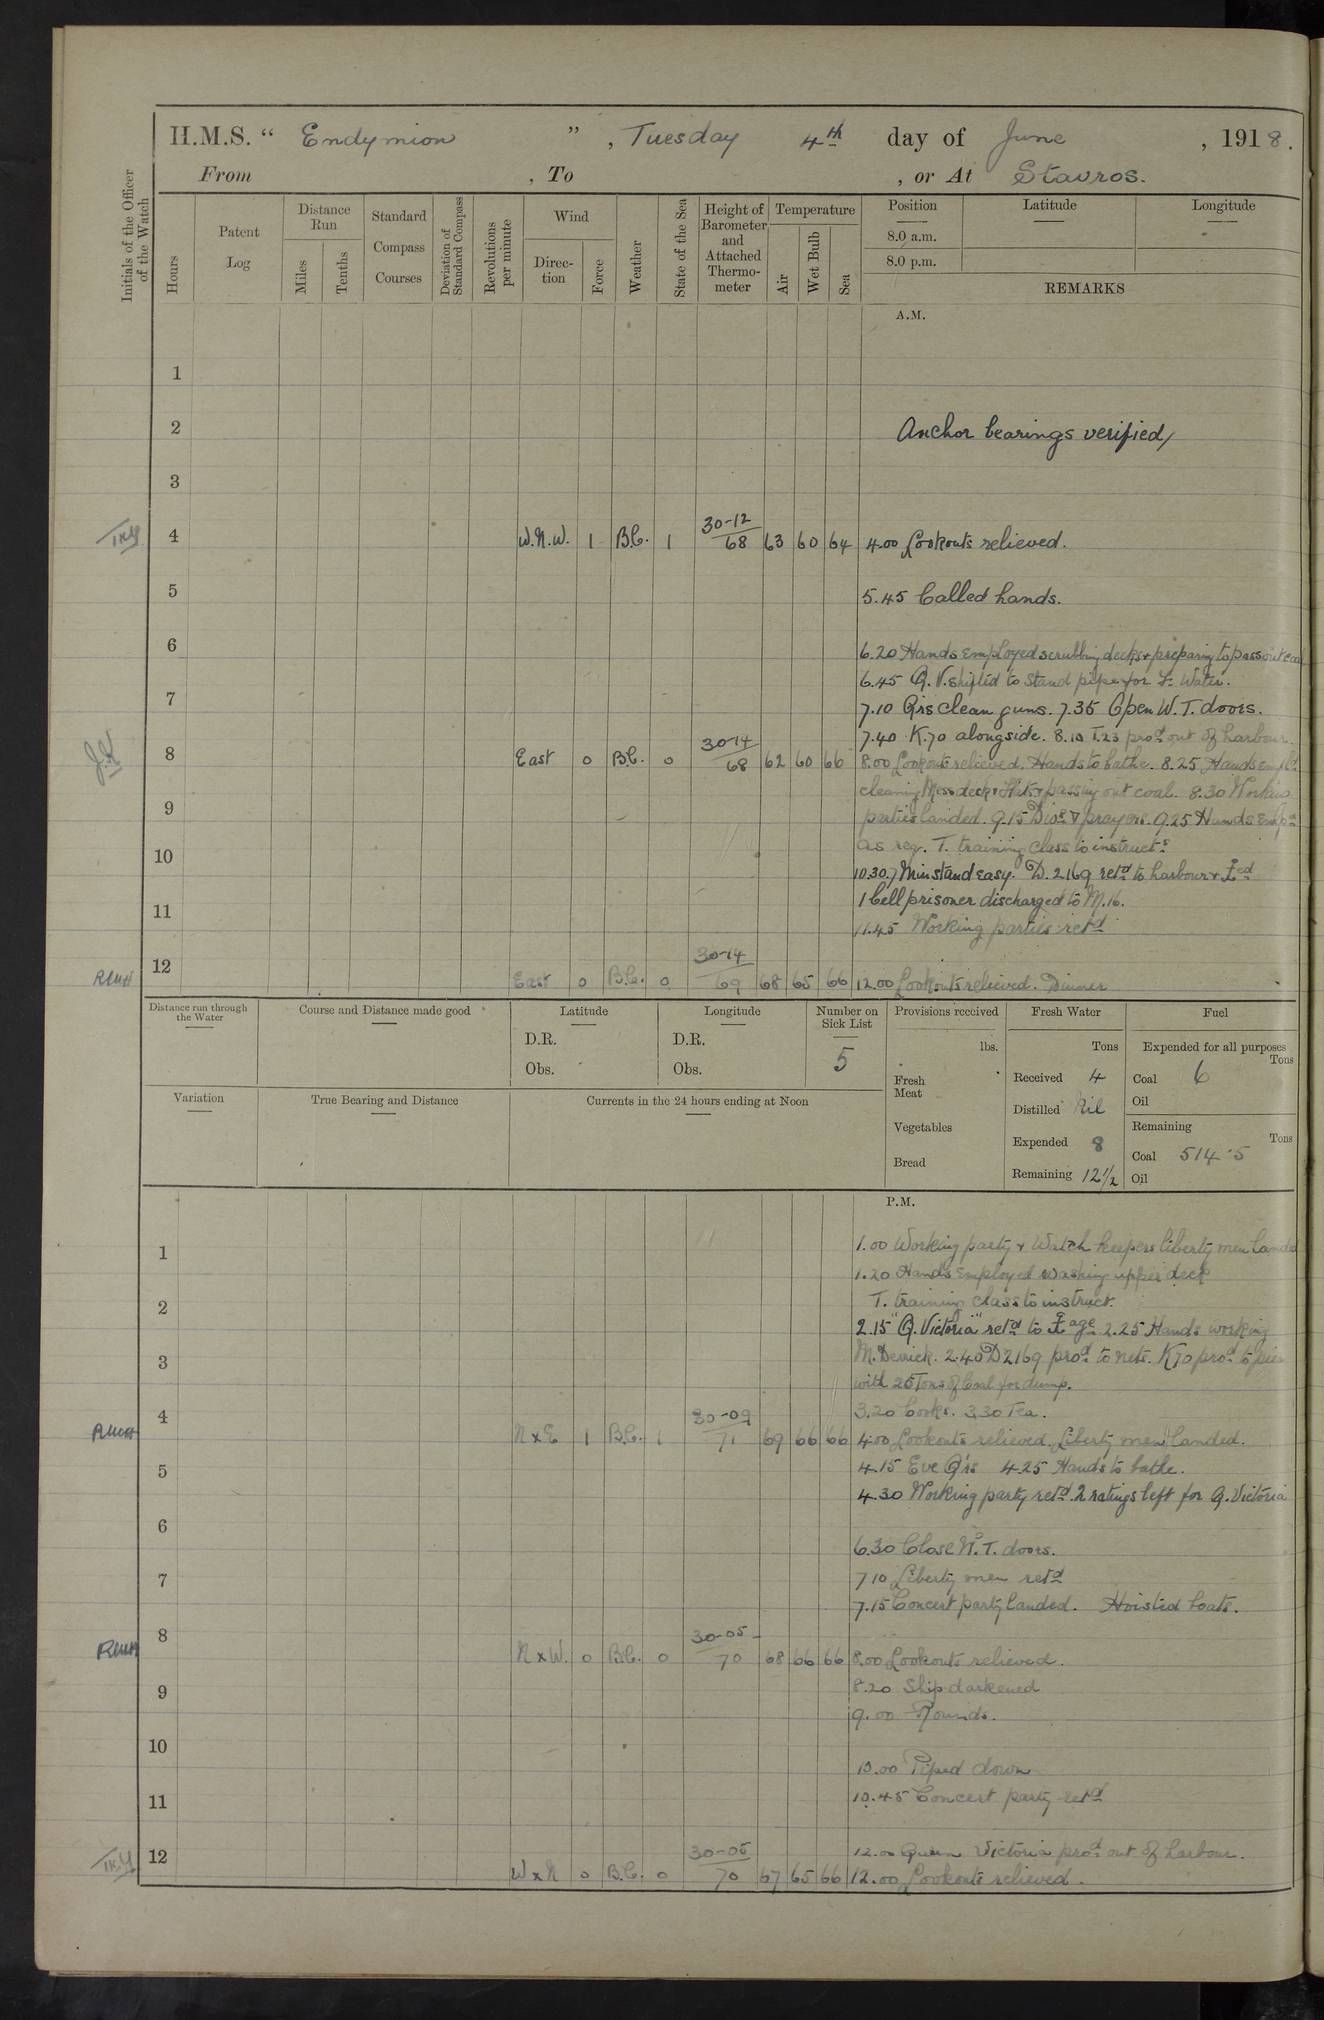 H.M.S. “ Endymion ” , Tuesday 4th day of June , 1918.
From , To , or At Stavros.
Initials of the Officer of the Watch
Hours
Patent Log
Distance Run
Miles
Tenths
Standard Compass Courses
Deviation of Standard Compass
Revolutions per minute
Wind
Direction
Force
Weather
State of the Sea
Height of Barometer and Attached Thermometer
Temperature
Air
Wet Bulb
Sea
Position
8.0 a.m.
8.0 p.m.
Latitude
Longitude
REMARKS
A.M.
1
2 Anchor bearings verified,
3
4 W.N.W. 1 B.C. 1 30-12 68 63 60 64 4.00 Lookouts relieved.
5 5.45 Called hands.
6 6.20 Hands employed scrubbing decks & preparing to pass out coal
6.45 Q.V. shifted to stand pipe for F. Water.
7 7.10 Qrs clean guns. 7.35 Open W.T. doors.
7.40 K.70 alongside. 8.10 T.23 procd out of harbour.
8 East 0 B.C. 0 30-14 68 62 60 66 8.00 Lookouts relieved. Hands to bathe. 8.25 Hands empld
cleaning Mess decks & flats & passing out coal. 8.30 Working
9 parties landed. 9.15 Divs & prayers. 9.25 Hands emp
10 as req. T. training class to instruct
10.30. 7 Min stand easy. D.2169 retd to harbour &
11 1 Cell prisoner discharged to M.16.
11.45 Working parties retd
12 East 0 B.C. 0 30-14 69 68 65 66 12.00 Lookouts relieved. Dinner
Distance run through the Water
Course and Distance made good
Latitude
D.R.
Obs.
Longitude
D.R.
Obs.
Number on Sick List
5
Provisions received
lbs.
Fresh Meat
Vegetables
Bread
Fresh Water
Tons
Received 4
Distilled Nil
Expended 8
Remaining 121/2
Fuel
Expended for all purposes
Tons
Coal 6
Oil
Remaining
Tons
Coal 514.5
Oil
Variation
True Bearing and Distance
Currents in the 24 hours ending at Noon
P.M.
1 1.00 Working party & Watch keepers liberty men landed
1.20 Hands employed washing upper deck
2 T. training class to instruct.
2.15 "Q. Victoria" retd to 2.25 Hands working
3 M. Derrick. 2.40 D2169 procd to nets. K70 procd to pier
with 25 Tons of Coal for dump.
4 3.20 Cooks. 3.30 Tea.
RMH N x E 1 B.C. 1 30-09 71 69 66 66 4.00 Lookouts relieved. Liberty men landed.
5 4.15 Eve Qrs 4.25 Hands to bathe.
4.30 Working party retd. 2 ratings left for Q. Victoria
6 6.30 Close W.T. doors.
7 7.10 Liberty men retd
7.15 Concert party landed. Hoisted boats.
8 N x W. 0 B.C. 0 30-05 70 68 66 66 8.00 Lookouts relieved.
9 8.20 Ship darkened
9.00 Rounds.
10 10.00 Piped down
11 10.45 Concert party retd
12 12.00 Queen Victoria procd out of harbour.
W x N 0 B.C. 0 30-05 70 67 65 66 12.00 Lookouts relieved.